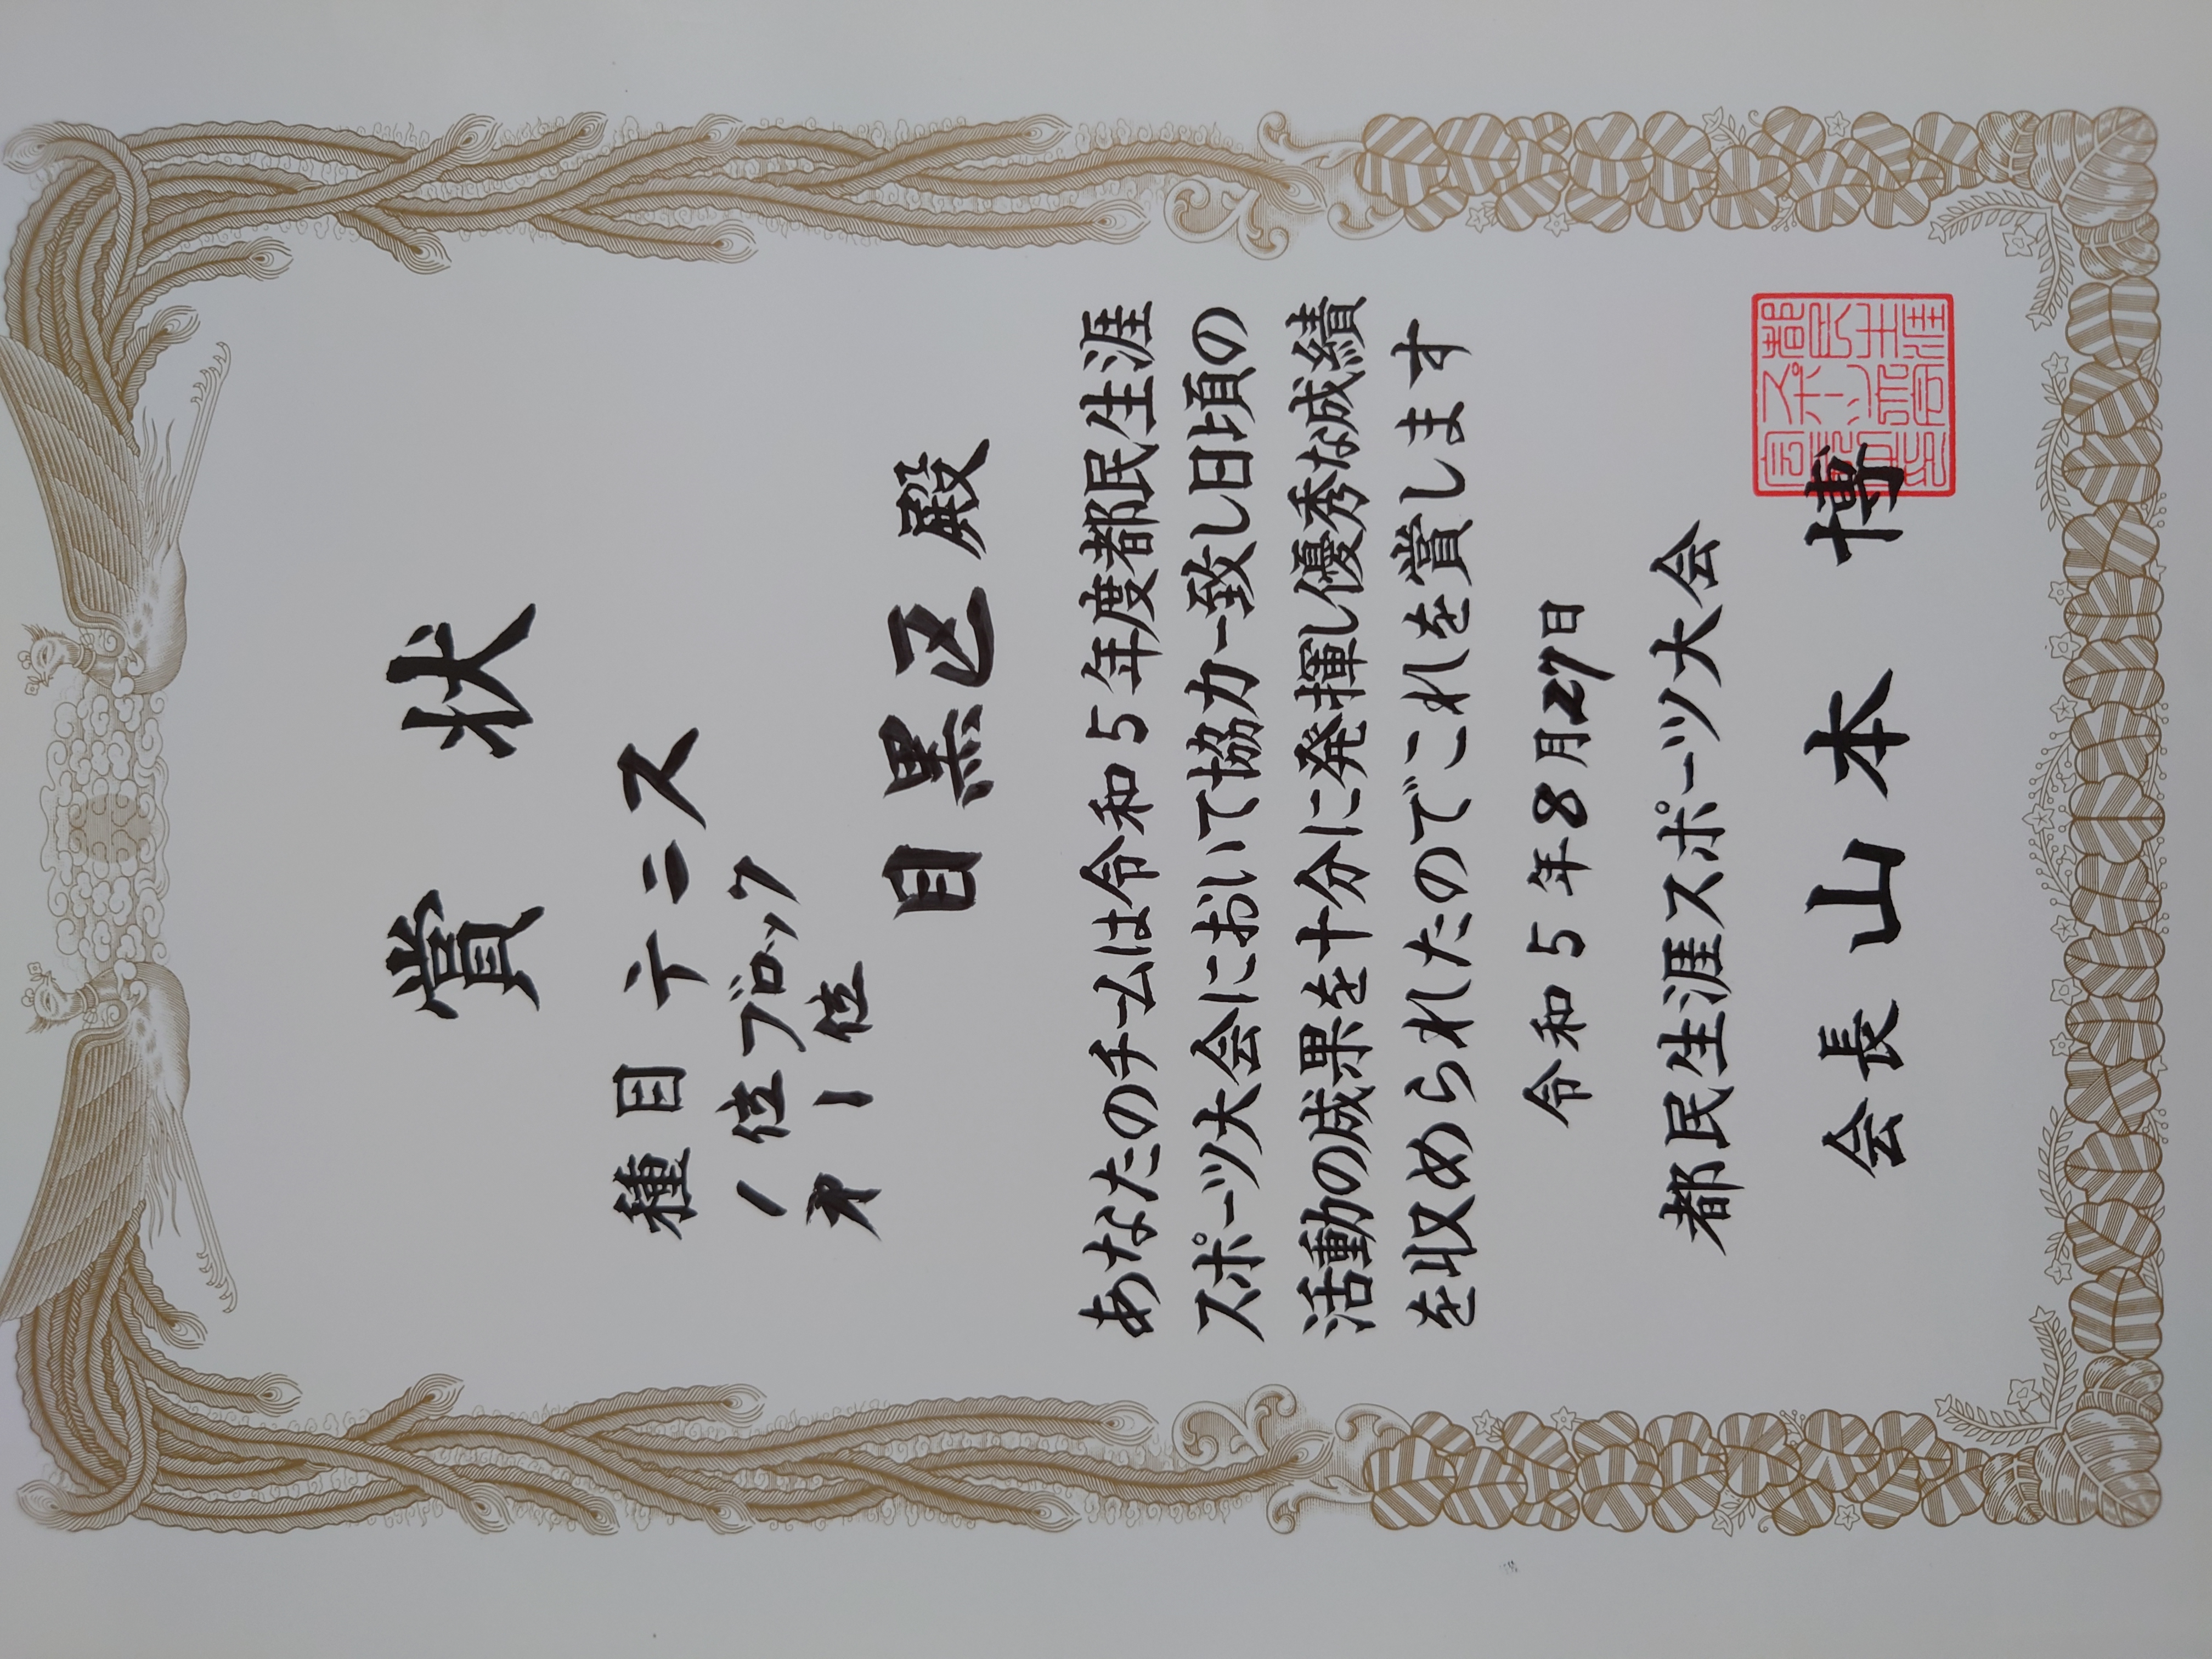 賞状
種目 テニス
1位ブロック
才一位
目黒区 殿
あなたのチームは令和5年度都民生涯
スポーツ大会において協力一致し日頃の
活動の成果を十分に発揮し優秀な成績
を収められたのでこれを賞します
令和5年8月27日
都民生涯スポーツ大会
会長 山本 博